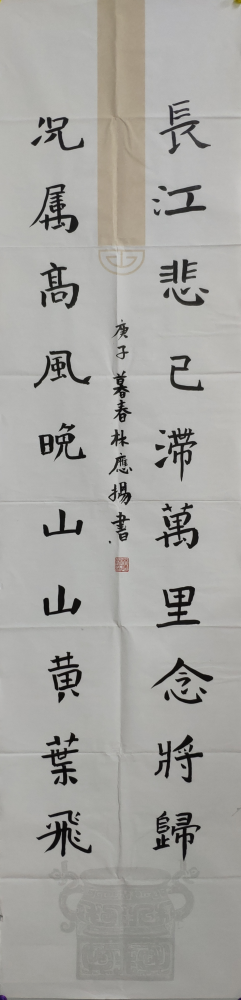 長江悲已滯萬里念將歸
况属高風晚山山黄葉飛
庚子暮春林應揚書